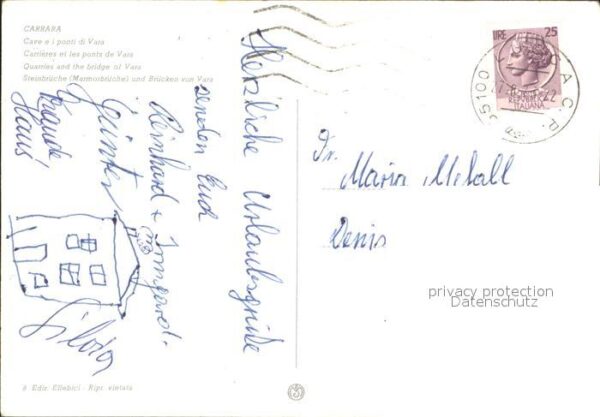 CARRARA
Cave e i ponti di Vara
Carrières et les ponts de Vara
Quarries and the bridge of Vara
Steinbrüche (Marmorbrüche) und Brücken von Vara
Herzliche Urlaubsgrüße
senden Euch
Reinhard + Irmgard.
Günter
Hans
Silvia
LIRE 25
POSTE
REPUBBLICA
ITALIANA
55100
A C. P.
Maria
Denis
privacy protection
Datenschutz
Ediz. Ellebici - Ripr. vietata